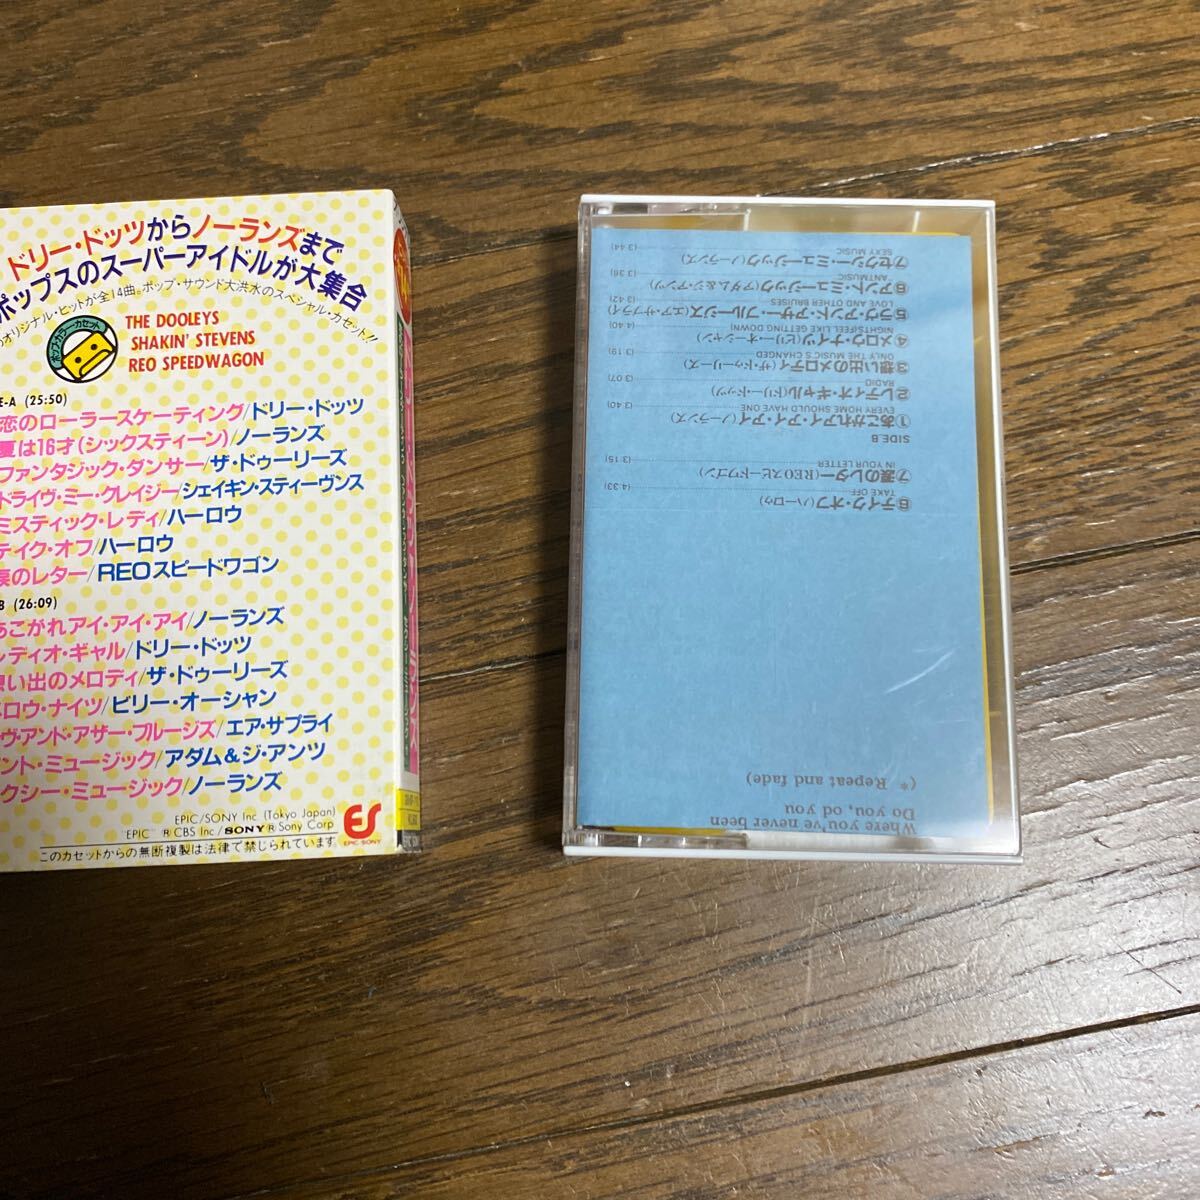 ドリー・ドッツからノーランズまで
ポップスのスーパーアイドルが大集合
オリジナル・ヒットが全14曲。ポップ・サウンド大洪水のスペシャル・カセット!!
THE DOOLEYS
SHAKIN' STEVENS
REO SPEEDWAGON
E-A (25:50)
恋のローラースケーティング/ドリー・ドッツ
夏は16才(シックスティーン)/ノーランズ
ファンタジック・ダンサー/ザ・ドゥーリーズ
ドライヴ・ミー・クレイジー/シェイキン・スティーヴンス
ミスティック・レディ/ハーロウ
テイク・オフ/ハーロウ
涙のレター/REOスピードワゴン
B (26:09)
あこがれアイ・アイ・アイ/ノーランズ
レディオ・ギャル/ドリー・ドッツ
想い出のメロディ/ザ・ドゥーリーズ
メロウ・ナイツ/ビリー・オーシャン
ヴ・アンド・アザー・ブルージズ/エア・サプライ
ント・ミュージック/アダム&ジ・アンツ
クシー・ミュージック/ノーランズ
EPIC/SONY Inc (Tokyo Japan)
"EPIC" ® CBS Inc/SONY® Sony Corp
ES
EPIC/SONY
このカセットからの無断複製は法律で禁じられています。
Where you've never been
Do you, od you
(* Repeat and fade)
⑥テイク・オフ(ハーロウ) (4:33)
TAKE OFF
⑦涙のレター(REOスピードワゴン) (3:15)
IN YOUR LETTER
SIDE.B
①あこがれアイ・アイ・アイ(ノーランズ) (3:40)
EVERY HOME SHOULD HAVE ONE
②レディオ・ギャル(ドリー・ドッツ) (3:07)
RADIO
③想い出のメロディ(ザ・ドゥーリーズ) (3:19)
ONLY THE MUSIC'S CHANGED
④メロウ・ナイツ(ビリー・オーシャン) (4:40)
NIGHTS(FEEL LIKE GETTING DOWN)
⑤ラヴ・アンド・アザー・ブルージズ(エア・サプライ) (3:42)
LOVE AND OTHER BRUISES
⑥アント・ミュージック(アダム&ジ・アンツ) (3:36)
"ANTMUSIC"
⑦セクシー・ミュージック(ノーランズ) (3:44)
SEXY MUSIC